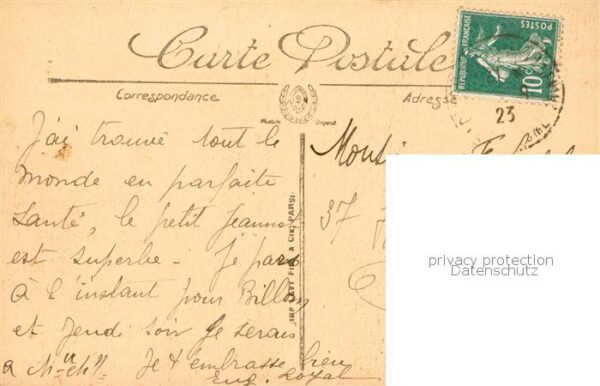 Carte Postale
POSTES
REPUBLIQUE FRANÇAISE
10c
Correspondance
Adresse
23
J'ai trouvé tout le
monde en parfaite
santé, le petit Jeannot
est superbe. Je pars
à l'instant pour Billom
et Jeudi soir je serais
a
Je t'embrasse bien
Eug. Royal
37
IMP. LEVY FILS & CIE PARIS.
privacy protection
Datenschutz